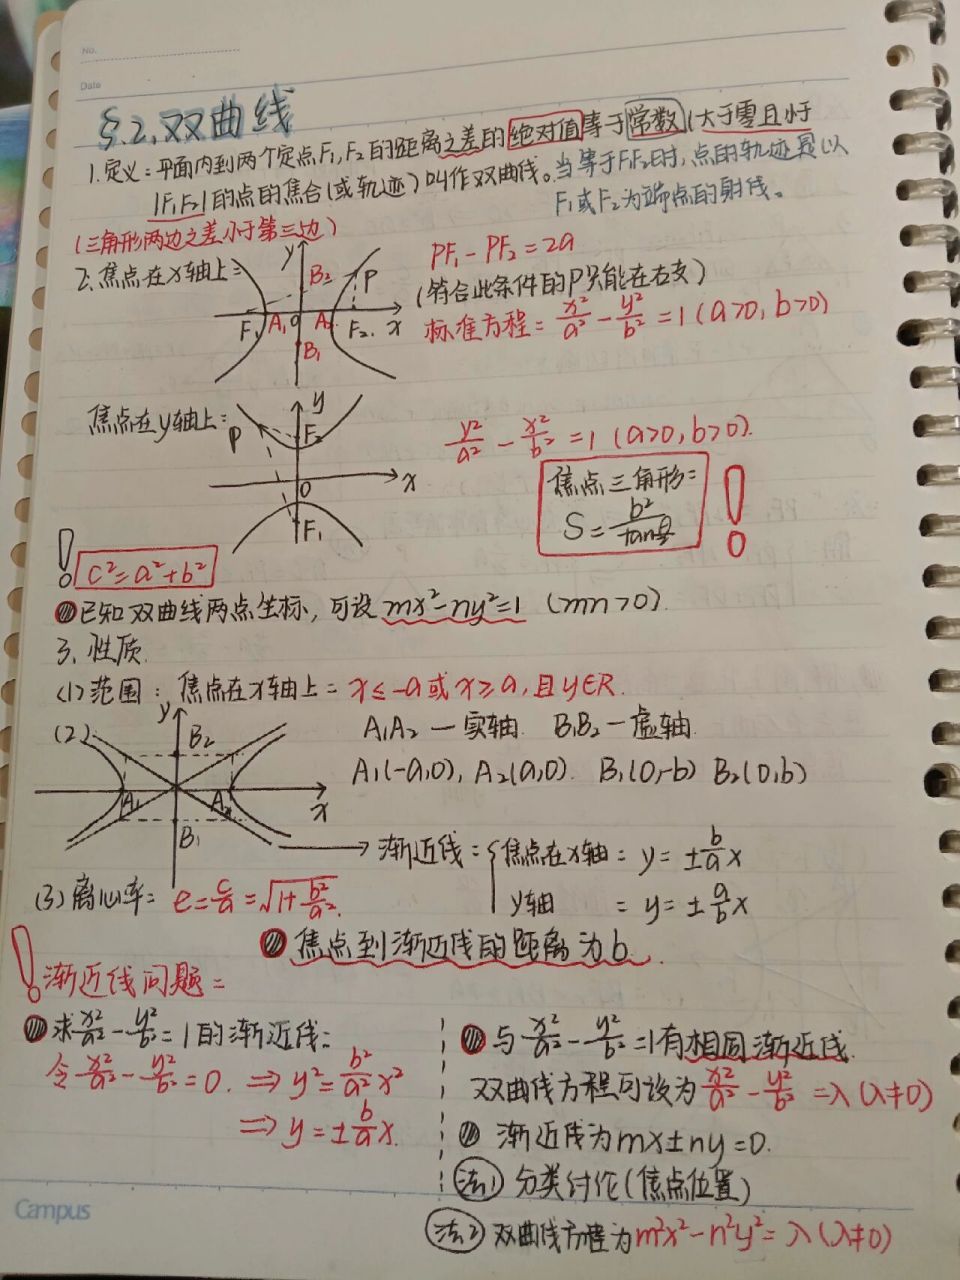 No.
Date
§.2.双曲线
1.定义:平面内到两个定点F₁,F₂的距离之差的绝对值等于常数(大于零且小于
|F₁F₂|的点的集合(或轨迹)叫作双曲线。当等于F₁F₂时,点的轨迹是以
F₁或F₂为端点的射线。
(三角形两边之差小于第三边)
2.焦点在x轴上:
y B₂ P
F₁ A₁ 0 A₂ F₂ x
B₁
PF₁-PF₂=2a
(符合此条件的P只能在右支)
标准方程:x²/a²-y²/b²=1(a>0,b>0)
焦点在y轴上:
y
P F₂
0 x
F₁
y²/a²-x²/b²=1(a>0,b>0).
焦点三角形:
S=b²/tanθ/2
!
! c²=a²+b²
已知双曲线两点坐标,可设mx²-ny²=1 (mn>0).
3.性质.
(1)范围:焦点在x轴上:x≤-a或x≥a,且y∈R.
(2)
y B₂
A₁ A₂ x
B₁
A₁A₂—实轴. B₁B₂—虚轴.
A₁(-a,0),A₂(a,0). B₁(0,-b) B₂(0,b)
渐近线:{焦点在x轴:y=±b/a x
y轴 :y=±a/b x
(3)离心率:e=c/a=√1+b²/a².
焦点到渐近线的距离为b.
!渐近线问题:
求x²/a²-y²/b²=1的渐近线:
令x²/a²-y²/b²=0.⇒y²=b²/a² x²
⇒y=±b/a x.
与x²/a²-y²/b²=1有相同渐近线.
双曲线方程可设为x²/a²-y²/b²=λ(λ≠0)
渐近线为mx±ny=0.
法1 分类讨论(焦点位置)
法2 双曲线方程为m²x²-n²y²=λ(λ≠0)
Campus